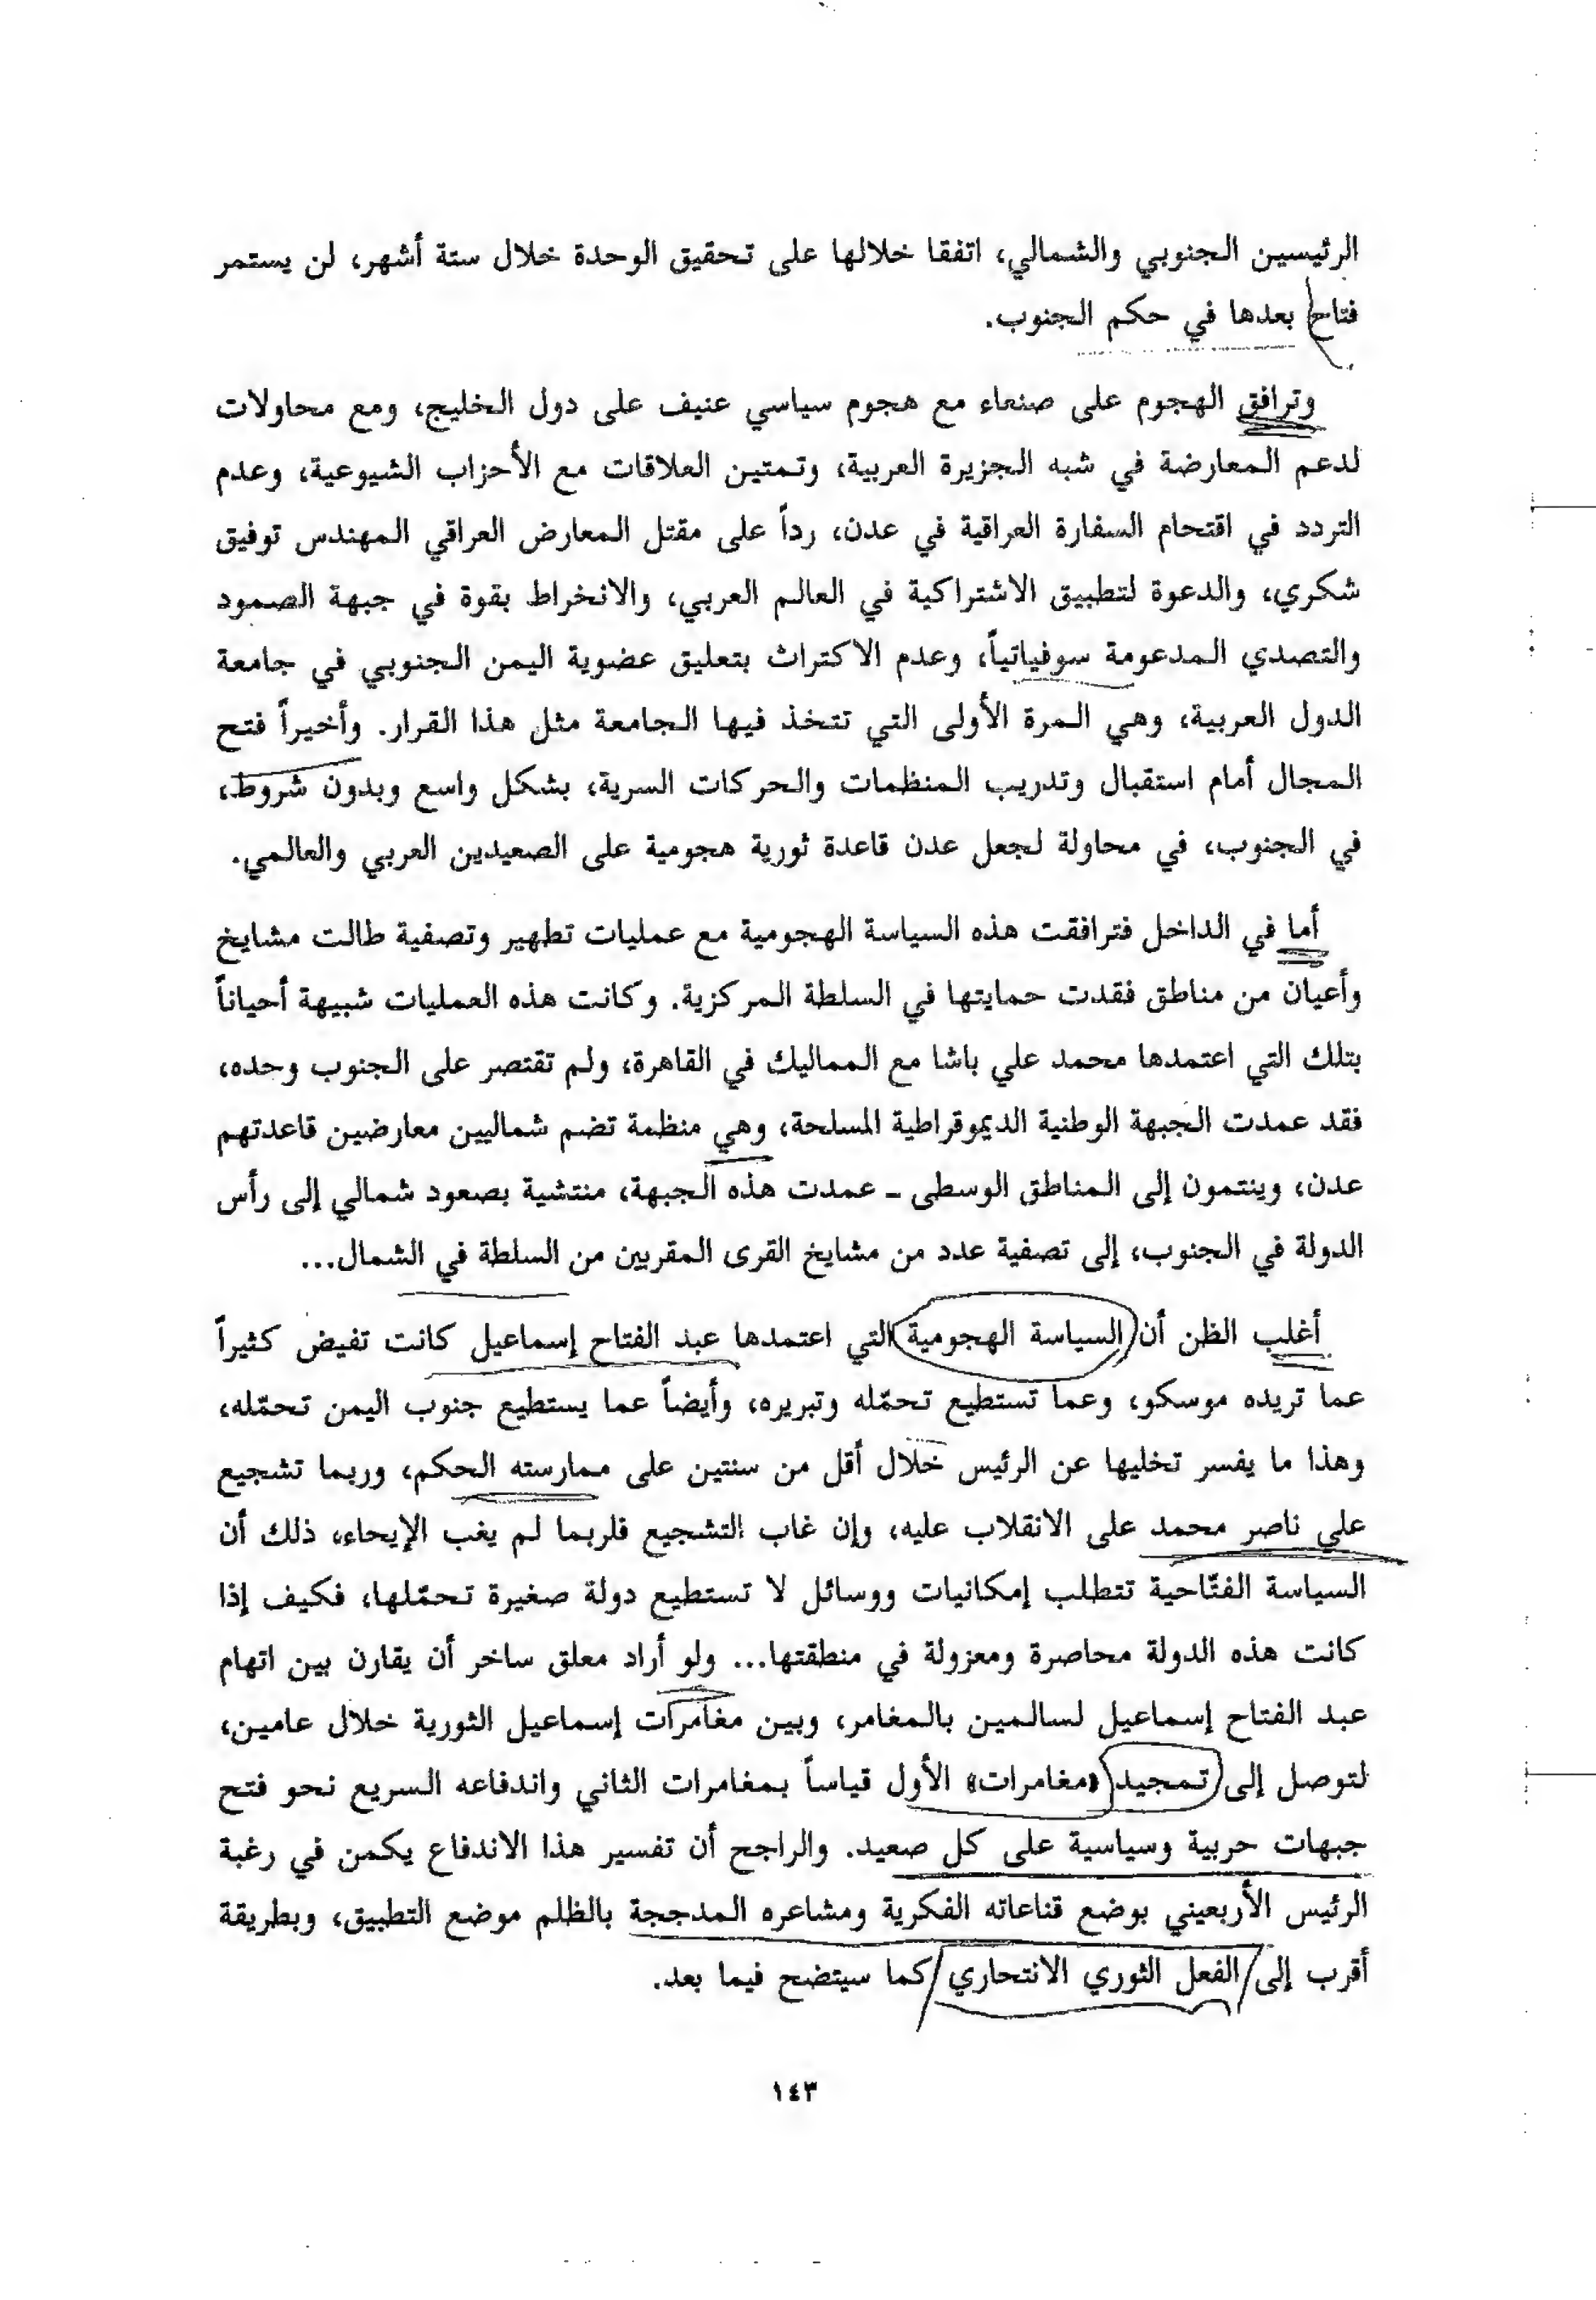 الرئيسين الجنوبي والشمالي، اتفقا خلالها على تحقيق الوحدة خلال ستة أشهر، لن يستمر
فتاح بعدها في حكم الجنوب.
وترافق الهجوم على صنعاء مع هجوم سياسي عنيف على دول الخليج، ومع محاولات
لدعم المعارضة في شبه الجزيرة العربية، وتمتين العلاقات مع الأحزاب الشيوعية، وعدم
التردد في اقتحام السفارة العراقية في عدن، رداً على مقتل المعارض العراقي المهندس توفيق
شكري، والدعوة لتطبيق الاشتراكية في العالم العربي، والانخراط بقوة في جبهة الصمود
والتصدي المدعومة سوفياتياً، وعدم الاكتراث بتعليق عضوية اليمن الجنوبي في جامعة
الدول العربية، وهي المرة الأولى التي تتخذ فيها الجامعة مثل هذا القرار. وأخيراً فتح
المجال أمام استقبال وتدريب المنظمات والحركات السرية، بشكل واسع وبدون شروط،
في الجنوب، في محاولة لجعل عدن قاعدة ثورية هجومية على الصعيدين العربي والعالمي.
أما في الداخل فترافقت هذه السياسة الهجومية مع عمليات تطهير وتصفية طالت مشايخ
وأعيان من مناطق فقدت حمايتها في السلطة المركزية. وكانت هذه العمليات شبيهة أحياناً
بتلك التي اعتمدها محمد علي باشا مع المماليك في القاهرة، ولم تقتصر على الجنوب وحده،
فقد عمدت الجبهة الوطنية الديموقراطية المسلحة، وهي منظمة تضم شماليين معارضين قاعدتهم
عدن، وينتمون إلى المناطق الوسطى - عمدت هذه الجبهة، منتشية بصعود شمالي إلى رأس
الدولة في الجنوب، إلى تصفية عدد من مشايخ القرى المقربين من السلطة في الشمال...
أغلب الظن أن السياسة الهجومية التي اعتمدها عبد الفتاح إسماعيل كانت تفيض كثيراً
عما تريده موسكو، وعما تستطيع تحمّله وتبريره، وأيضاً عما يستطيع جنوب اليمن تحمّله،
وهذا ما يفسر تخليها عن الرئيس خلال أقل من سنتين على ممارسته الحكم، وربما تشجيع
علي ناصر محمد على الانقلاب عليه، وإن غاب التشجيع فلربما لم يغب الإيحاء، ذلك أن
السياسة الفتّاحية تتطلب إمكانيات ووسائل لا تستطيع دولة صغيرة تحمّلها، فكيف إذا
كانت هذه الدولة محاصرة ومعزولة في منطقتها... ولو أراد معلق ساخر أن يقارن بين اتهام
عبد الفتاح إسماعيل لسالمين بالمغامر، وبين مغامرات إسماعيل الثورية خلال عامين،
لتوصل إلى تمجيد «مغامرات» الأول قياساً بمغامرات الثاني واندفاعه السريع نحو فتح
جبهات حربية وسياسية على كل صعيد. والراجح أن تفسير هذا الاندفاع يكمن في رغبة
الرئيس الأربعيني بوضع قناعاته الفكرية ومشاعره المدججة بالظلم موضع التطبيق، وبطريقة
أقرب إلى الفعل الثوري الانتحاري كما سيتضح فيما بعد.
١٤٣